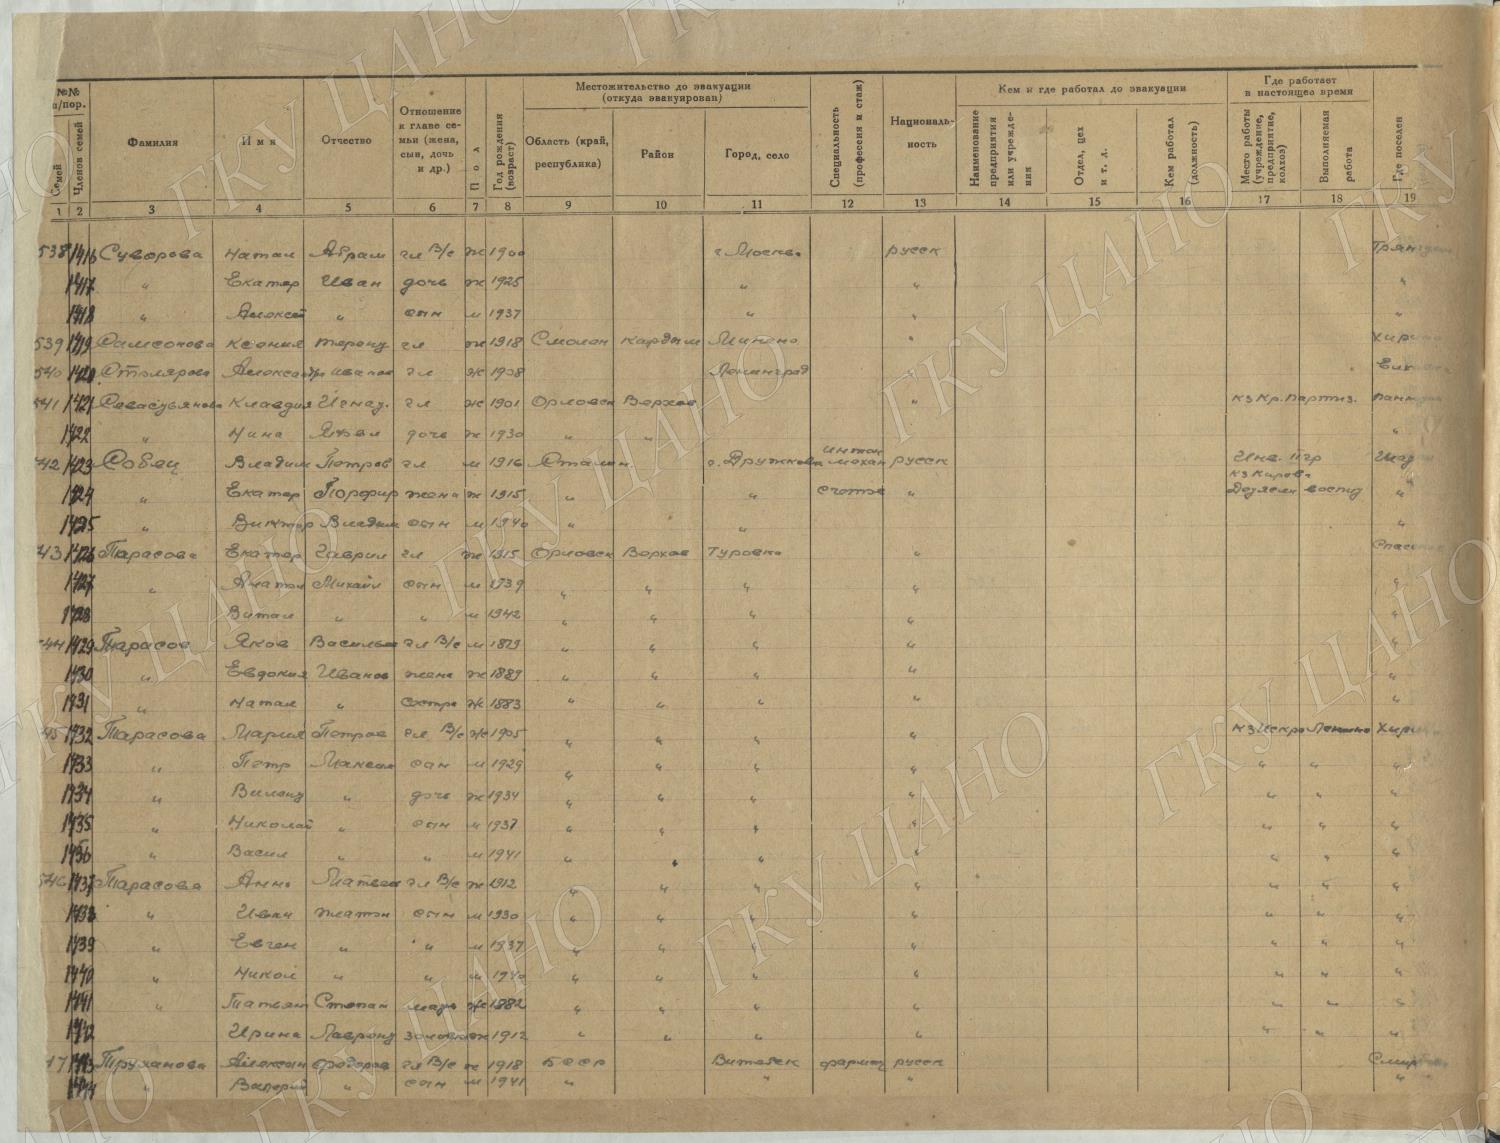 №№ п/пор.
Семей
Членов семей
Фамилия
Имя
Отчество
Отношение к главе семьи (жена, сын, дочь и др.)
Пол
Год рождения (возраст)
Местожительство до эвакуации (откуда эвакуирован)
Область (край, республика)
Район
Город, село
Специальность (профессия и стаж)
Националь-ность
Кем и где работал до эвакуации
Наименование предприятия или учрежде-ния
Отдел, цех и т. д.
Кем работал (должность)
Где работает в настоящее время
Место работы (учреждение, предприятие, колхоз)
Выполняемая работа
Где поселен
1 2 3 4 5 6 7 8 9 10 11 12 13 14 15 16 17 18 19
538 1416 Суворова Натал Абрам гл В/с ж 1900 г Москва русск
1417 " Екатер Иван дочь ж 1925 " " "
1418 " Алексей " сын м 1937 " " "
539 1419 Самсонова Ксения Терент гл ж 1918 Смолен Кардым Минено "
540 1420 Столярова Александр Иванов гл ж 1908 Ленинград "
541 1421 Севастьянова Клавдия Игнат. гл ж 1901 Орловск Верхов " кз Кр. Партиз.
1422 " Нина Яковл дочь ж 1930 " " "
542 1423 Совец Владим Петров гл м 1916 Сталин г. Дружковка механ русск Инв. II гр
1424 " Екатер Порфир жена ж 1915 " " счетов " кз Кирова Детясли воспит "
1425 " Виктор Владим сын м 1940 " " "
543 1426 Тарасова Екатер Гаврил гл ж 1915 Орловск Верхов Туровка "
1427 " Анатол Михайл сын м 1939 " " " " "
1428 Витал " " м 1942 " " " " "
544 1429 Тарасов Яков Василье гл В/с м 1879 " " " " "
1430 " Евдокия Иванов жена ж 1889 " " " " "
1431 " Натал " сестра ж 1883 " " " " "
545 1432 Тарасова Мария Петров гл В/с ж 1905 " " " " кз Искра Ленина
1433 " Петр Максим сын м 1929 " " " " " " "
1434 " Виленз " дочь ж 1934 " " " " " " "
1435 " Николай " сын м 1937 " " " " " " "
1436 " Васил " " м 1941 " " " " " " "
546 1437 Тарасова Анна Матвее гл В/с ж 1912 " " " " " " "
1438 " Иван Платон сын м 1930 " " " " " " "
1439 " Евген " " м 1937 " " " " " " "
1440 " Никол " " м 1940 " " " " " " "
1441 " Татьян Степан мать ж 1882 " " " " " " "
1442 Ирина Лаврент золовка ж 1912 " " " " " " "
547 1443 Труханова Алексан Федоров гл В/с ж 1918 БССР Витебск фармац русск
1444 " Валерий " сын м 1941 " " " "
ГКУ ЦАНО